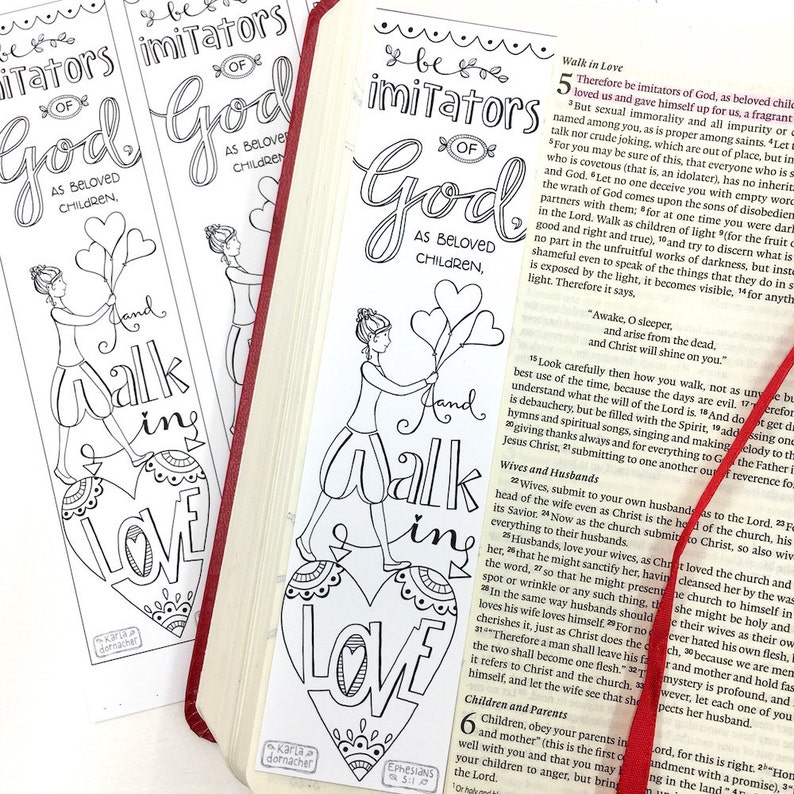 be
imitators
OF
God,
AS BELOVED
CHILDREN,
and
walk
in
LOVE
Karla
dornacher
be
imitators
OF
God,
AS BELOVED
CHILDREN,
be
imitators
OF
God,
AS BELOVED
CHILDREN,
and
walk
in
LOVE
Karla
dornacher
Ephesians
5:1
Walk in Love
5 Therefore be imitators of God, as beloved
loved us and gave himself up for us, a fragrant
3 But sexual immorality and all impurity or
named among you, as is proper among saints. 4 Let
talk nor crude joking, which are out of place, but
5 For you may be sure of this, that everyone who is
who is covetous (that is, an idolater), has no
and God. 6 Let no one deceive you with empty
the wrath of God comes upon the sons of
partners with them; 8 for at one time you were
in the Lord. Walk as children of light 9 (for the fruit
good and right and true), 10 and try to discern what is
no part in the unfruitful works of darkness, but
shameful even to speak of the things that they do in
is exposed by the light, it becomes visible, 14 for
light. Therefore it says,
“Awake, O sleeper,
and arise from the dead,
and Christ will shine on you.”
15 Look carefully then how you walk, not as
best use of the time, because the days are evil. 17
understand what the will of the Lord is. 18 And do not get
is debauchery, but be filled with the Spirit, 19 addressing one
hymns and spiritual songs, singing and making melody to the
20 giving thanks always and for everything to God the Father
Jesus Christ, 21 submitting to one another out of reverence for
Wives and Husbands
22 Wives, submit to your own husbands, as to the Lord. 23
head of the wife even as Christ is the head of the church, his
its Savior. 24 Now as the church submits to Christ, so also
everything to their husbands.
25 Husbands, love your wives, as Christ loved the church and
her, 26 that he might sanctify her, having cleansed her by the
the word, 27 so that he might present the church to himself in
spot or wrinkle or any such thing, that she might be holy and
28 In the same way husbands should love their wives as their
loves his wife loves himself. 29 For no one ever hated his own flesh,
cherishes it, just as Christ does the church, 30 because we are
31 “Therefore a man shall leave his father and mother and hold fast
the two shall become one flesh.” 32 This mystery is profound, and
it refers to Christ and the church. 33 However, let each one of you
himself, and let the wife see that she respects her husband.
Children and Parents
6 Children, obey your parents in the Lord, for this is right. 2
and mother” (this is the first commandment with a promise),
well with you and that you may live long in the land.” 4
your children to anger, but bring them up in
the Lord.